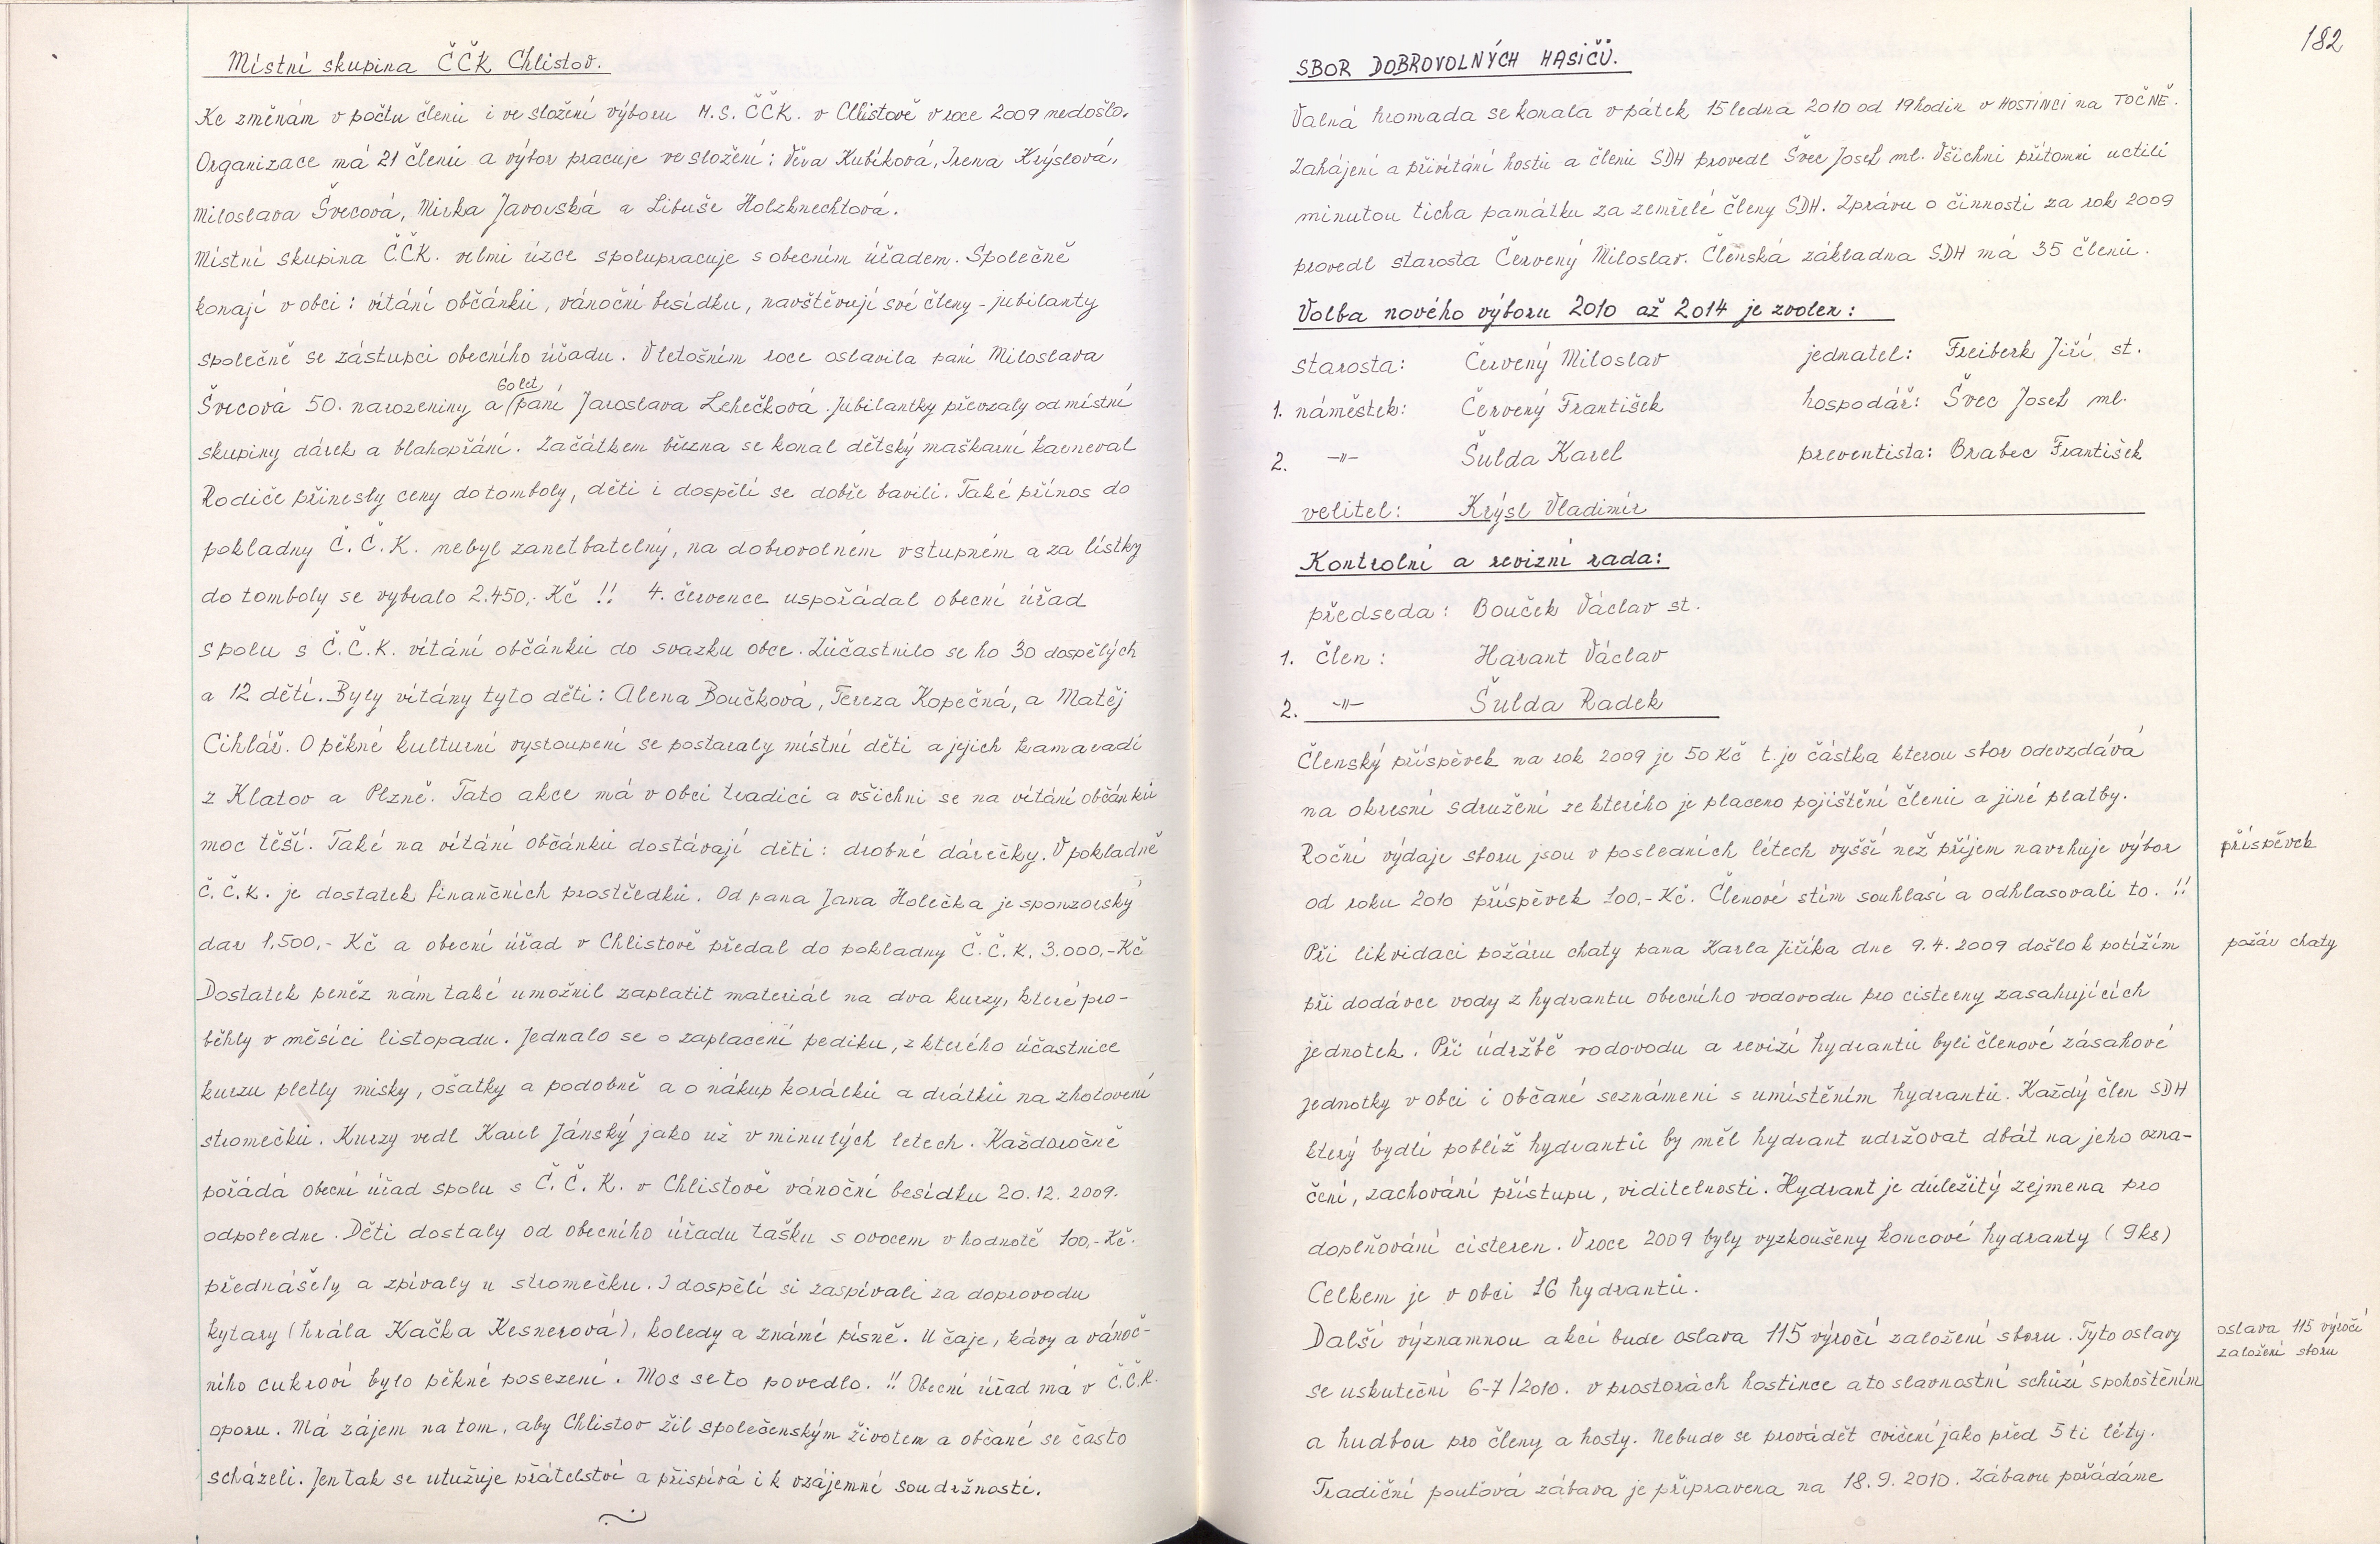 Místní skupina ČČK Chlistov.
Ke změnám v počtu členů i ve složení výboru M.S. ČČK. v Chlistově v roce 2009 nedošlo.
Organizace má 21 členů a výbor pracuje ve složení: Věra Kubíková, Irena Krýslová,
Miloslava Švecová, Mirka Javorská a Libuše Holzknechtová.
Místní skupina Č.ČK. velmi úzce spolupracuje s obecním úřadem. Společně
konají v obci: vítání občánků, vánoční besídku, navštěvují své členy - jubilanty
společně se zástupci obecního úřadu. V letošním roce oslavila paní Miloslava
60 let
Švecová 50. narozeniny a (paní Jaroslava Lehečková. Jubilantky převzaly od místní
skupiny dárek a blahopřání. Začátkem března se konal dětský maškarní karneval
Rodiče přinesly ceny do tomboly, děti i dospělí se dobře bavili. Také přínos do
pokladny Č.Č.K. nebyl zanetbatelný, na dobrovolném vstupném a za lístky
do tomboly se vybralo 2.450,- Kč !! 4. července uspořádal obecní úřad
spolu s Č.Č.K. vítání občánků do svazku obce. Zúčastnilo se ho 30 dospělých
a 12 dětí. Byly vítány tyto děti: Alena Boučková, Tereza Kopečná, a Matěj
Cihlář. O pěkné kulturní vystoupení se postaraly místní děti a jejich kamaradi
z Klatov a Plzně. Tato akce má v obci tradici a všichni se na vítání občánků
moc těší. Také na vítání občánků dostávají děti: drobné dárečky. V pokladně
Č.Č.K. je dostatek finančních prostředků. Od pana Jana Holečka je sponzorský
dar 1.500,- Kč a obecní úřad v Chlistově předal do pokladny Č.Č.K. 3.000,-Kč
Dostatek peněz nám také umožnil zaplatit materiál na dva kurzy, které pro-
běhly v měsíci listopadu. Jednalo se o zaplacení pediku, z kterého účastnice
kurzu pletly misky, ošatky a podobně a o nákup korálků a drátků na zhotovení
stromečků. Kurzy vedl Karel Jánský jako už v minulých letech. Každoročně
pořádá obecní úřad spolu s Č.Č.K. v Chlistově vánoční besídku 20.12.2009.
odpoledne. Děti dostaly od obecního úřadu tašku s ovocem v hodnotě 100,-Kč.
přednášely a zpívaly u stromečku. I dospělí si zaspívali za doprovodu
kytary (hrála Kačka Kesnerová), koledy a známé písně. U čaje, kávy a vánoč-
ního cukroví bylo pěkné posezení. Mos se to povedlo. !! Obecní úřad má v Č.Č.K.
oporu. Má zájem na tom, aby Chlistov žil společenským životem a občané se často
scházeli. Jen tak se utužuje přátelství a přispívá i k vzájemné soudržnosti.
182
SBOR DOBROVOLNÝCH HASIČŮ.
Valná hromada se konala v pátek 15 ledna 2010 od 19 hodin v HOSTINCI na TOČNĚ.
Zahájení a přivítání hostů a členů SDH provedl Švec Josef ml. Všichni přítomni uctili
minutou ticha památku za zemřelé členy SDH. Zprávu o činnosti za rok 2009
provedl starosta Červený Miloslav. Členská základna SDH má 35 členů.
Volba nového výboru 2010 až 2014 je zvolen:
starosta: Červený Miloslav jednatel: Freiberk Jiří st.
1. náměstek: Červený František hospodář: Švec Josef ml.
2. -"- Šulda Karel preventista: Brabec František
velitel: Krýsl Vladimír
Kontrolní a revizní rada:
předseda: Bouček Václav st.
1. člen: Harant Václav
2. -"- Šulda Radek
Členský příspěvek na rok 2009 je 50 Kč t. je částka kterou sbor odevzdává
na okresní sdružení ze kterého je placeno pojištění členů a jiné platby.
Roční výdaje sboru jsou v posledních létech vyšší než příjem navrhuje výbor
příspěvek
od roku 2010 příspěvek 100,-Kč. Členové stím souhlasí a odhlasovali to. !!
Při likvidaci požáru chaty pana Karla Jiříka dne 9.4.2009 došlo k potížím
požár chaty
při dodávce vody z hydrantu obecního vodovodu pro cisterny zasahujících
jednotek. Při údržbě vodovodu a revizi hydrantů byli členové zásahové
jednotky v obci i občané seznámeni s umístěním hydrantů. Každý člen SDH
který bydlí poblíž hydrantů by měl hydrant udržovat dbát na jeho ozna-
čení, zachování přístupu, viditelnosti. Hydrant je důležitý zejmena pro
doplňování cisteren. V roce 2009 byly vyzkoušeny koncové hydranty (9ks)
Celkem je v obci 16 hydrantů.
Další významnou akcí bude oslava 115 výročí založení sboru. Tyto oslavy
oslava 115 výročí
založení sboru
se uskuteční 6-7/2010. v prostorách hostince a to slavnostní schůzí spohoštěním
a hudbou pro členy a hosty. Nebude se provádět cvičení jako před 5ti léty.
Tradiční pouťová zábava je připravena na 18.9.2010. Zábavu pořádáme